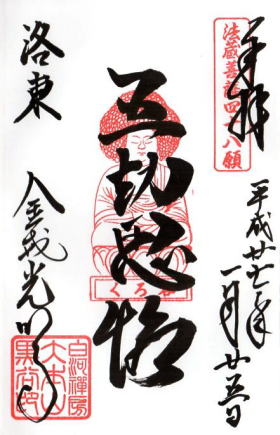 奉拝
法蔵菩薩四十八願
平成廿七年
一月廿五日
五劫思惟
くろ谷
洛東
金戒光明寺
白河禪房
大本山
黒谷